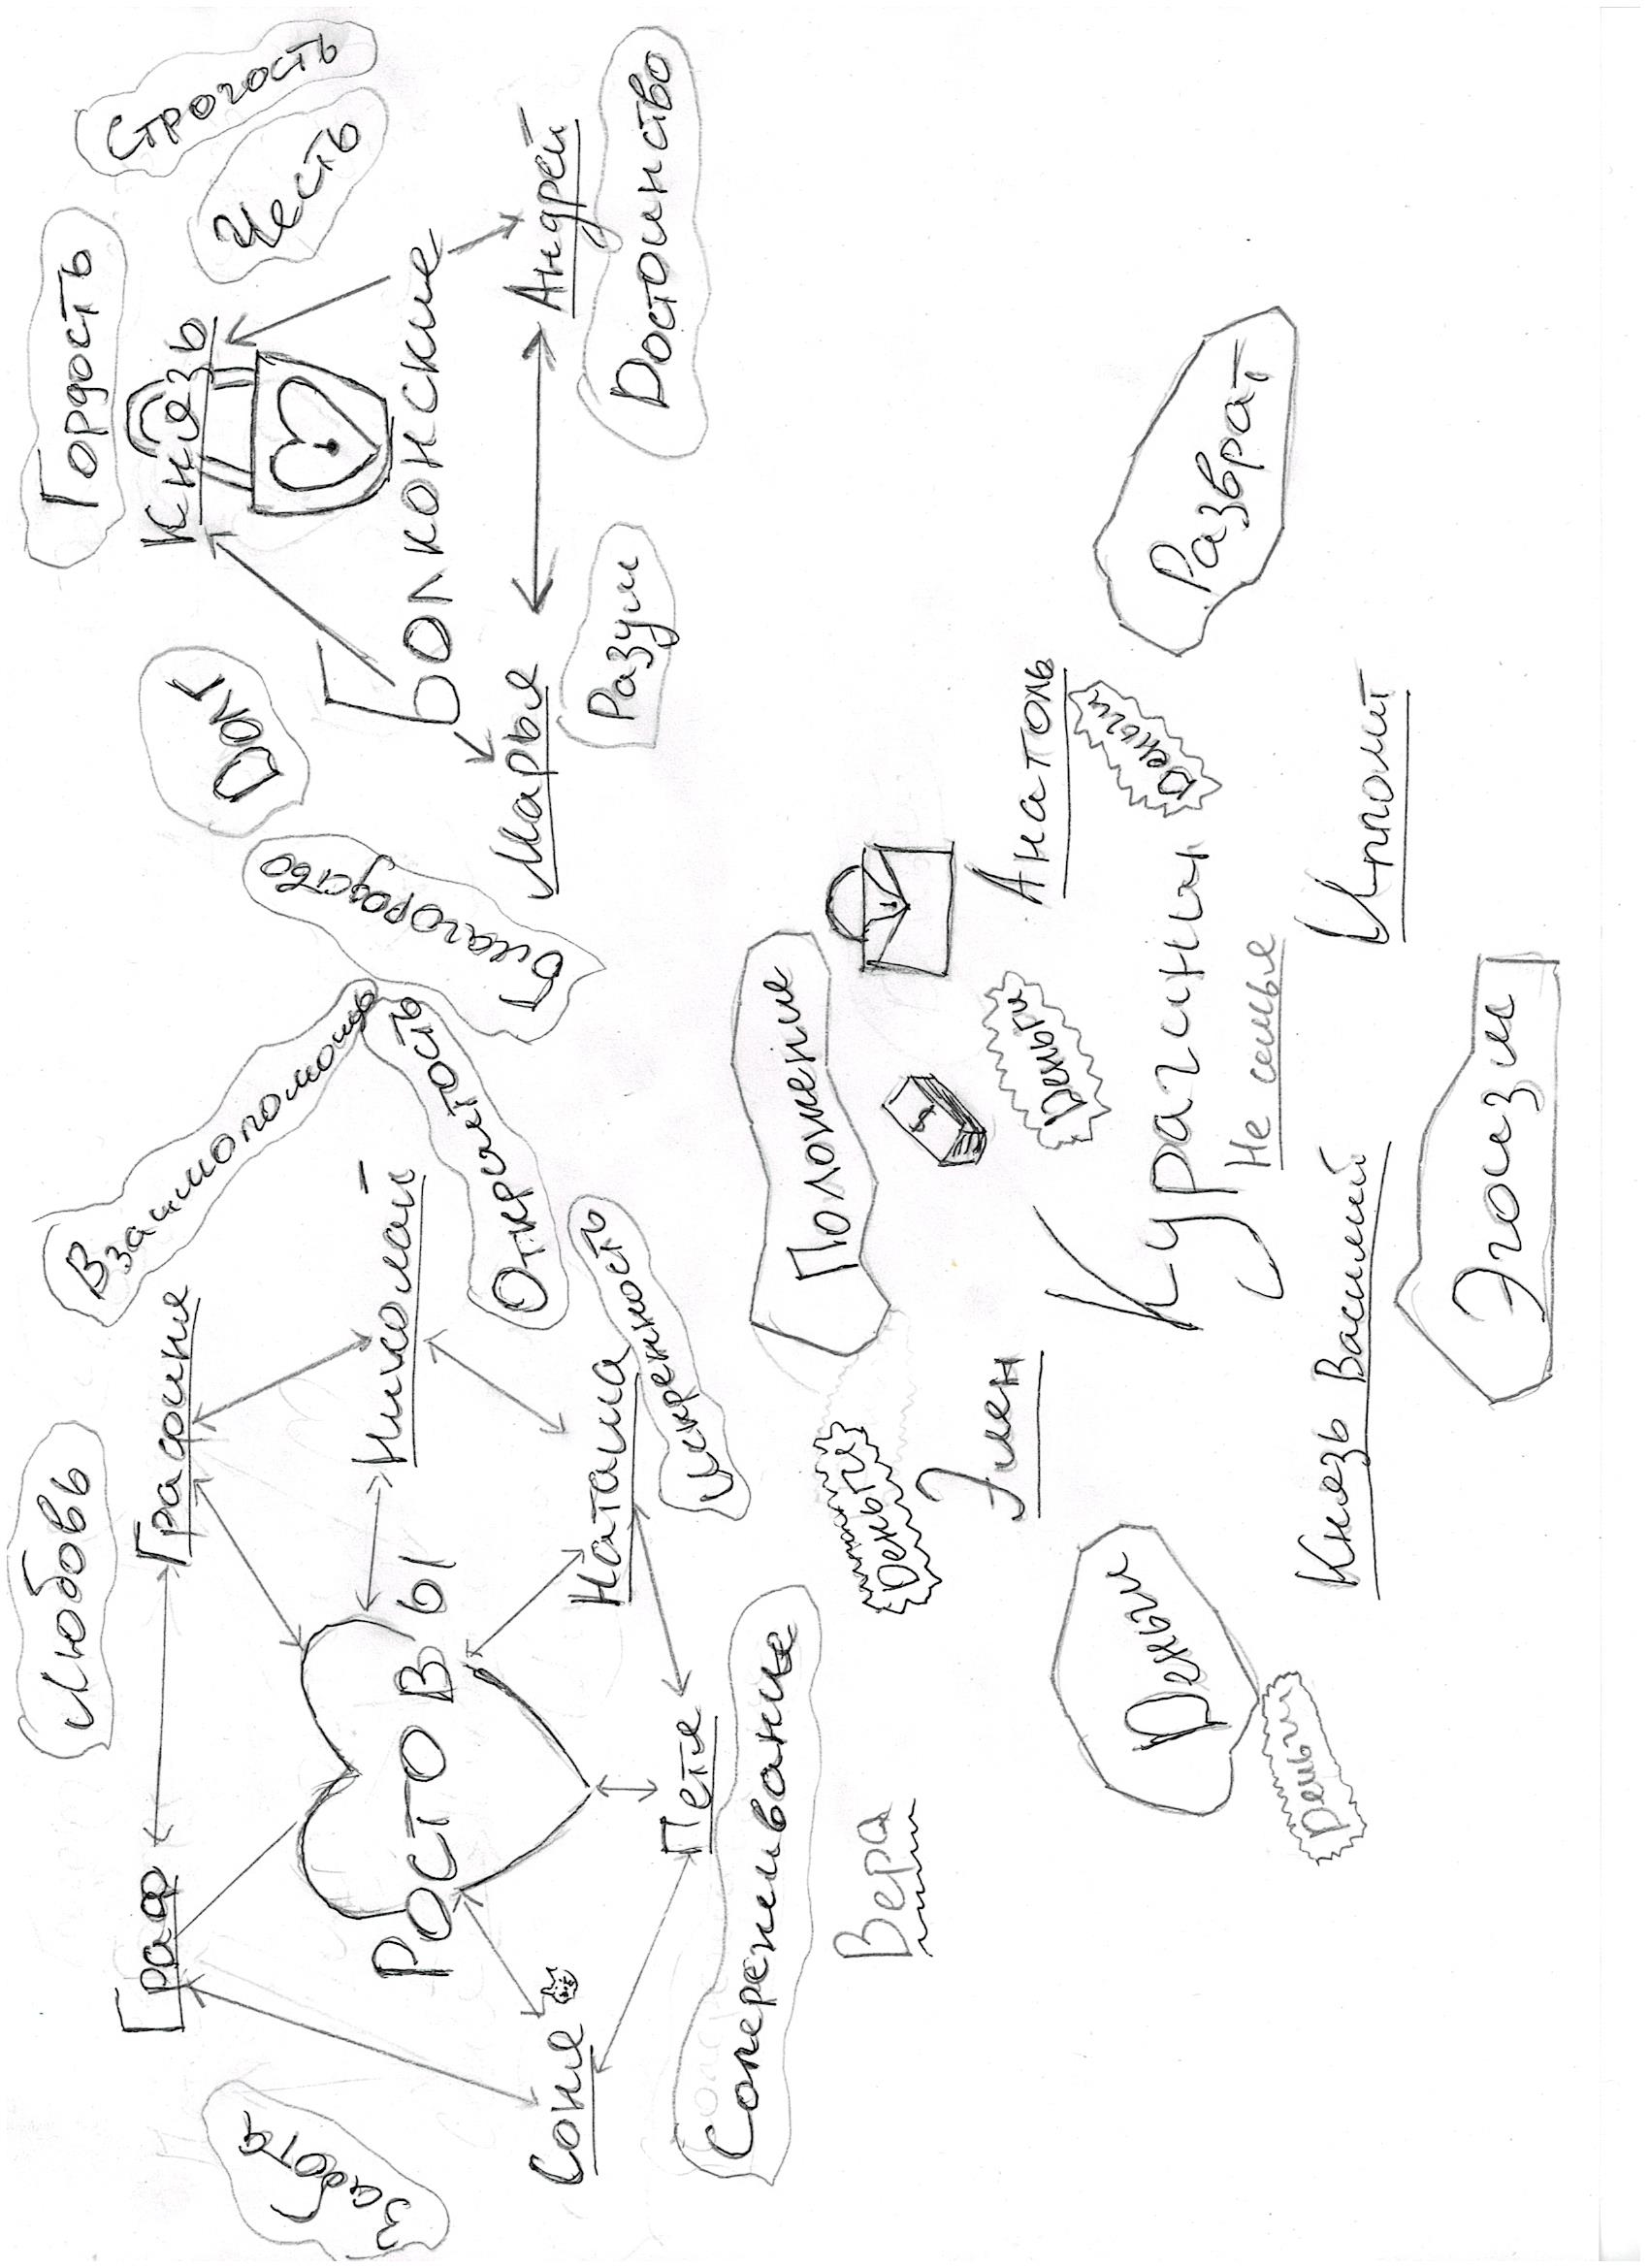 Любовь
Граф
Графиня
Взаимопомощь
Забота
Ростовы
Николай
Открытость
Соня
Наташа
Искренность
Петя
Сопереживание
Вера
Гордость
Строгость
Князь
Долг
Честь
Благородство
Болконские
Марья
Андрей
Разум
Достоинство
Положение
Деньги
$
Элен
Деньги
Анатоль
Деньги
Деньги
Курагины
Разврат
Не семья
Деньги
Князь Василий
Ипполит
Эгоизм